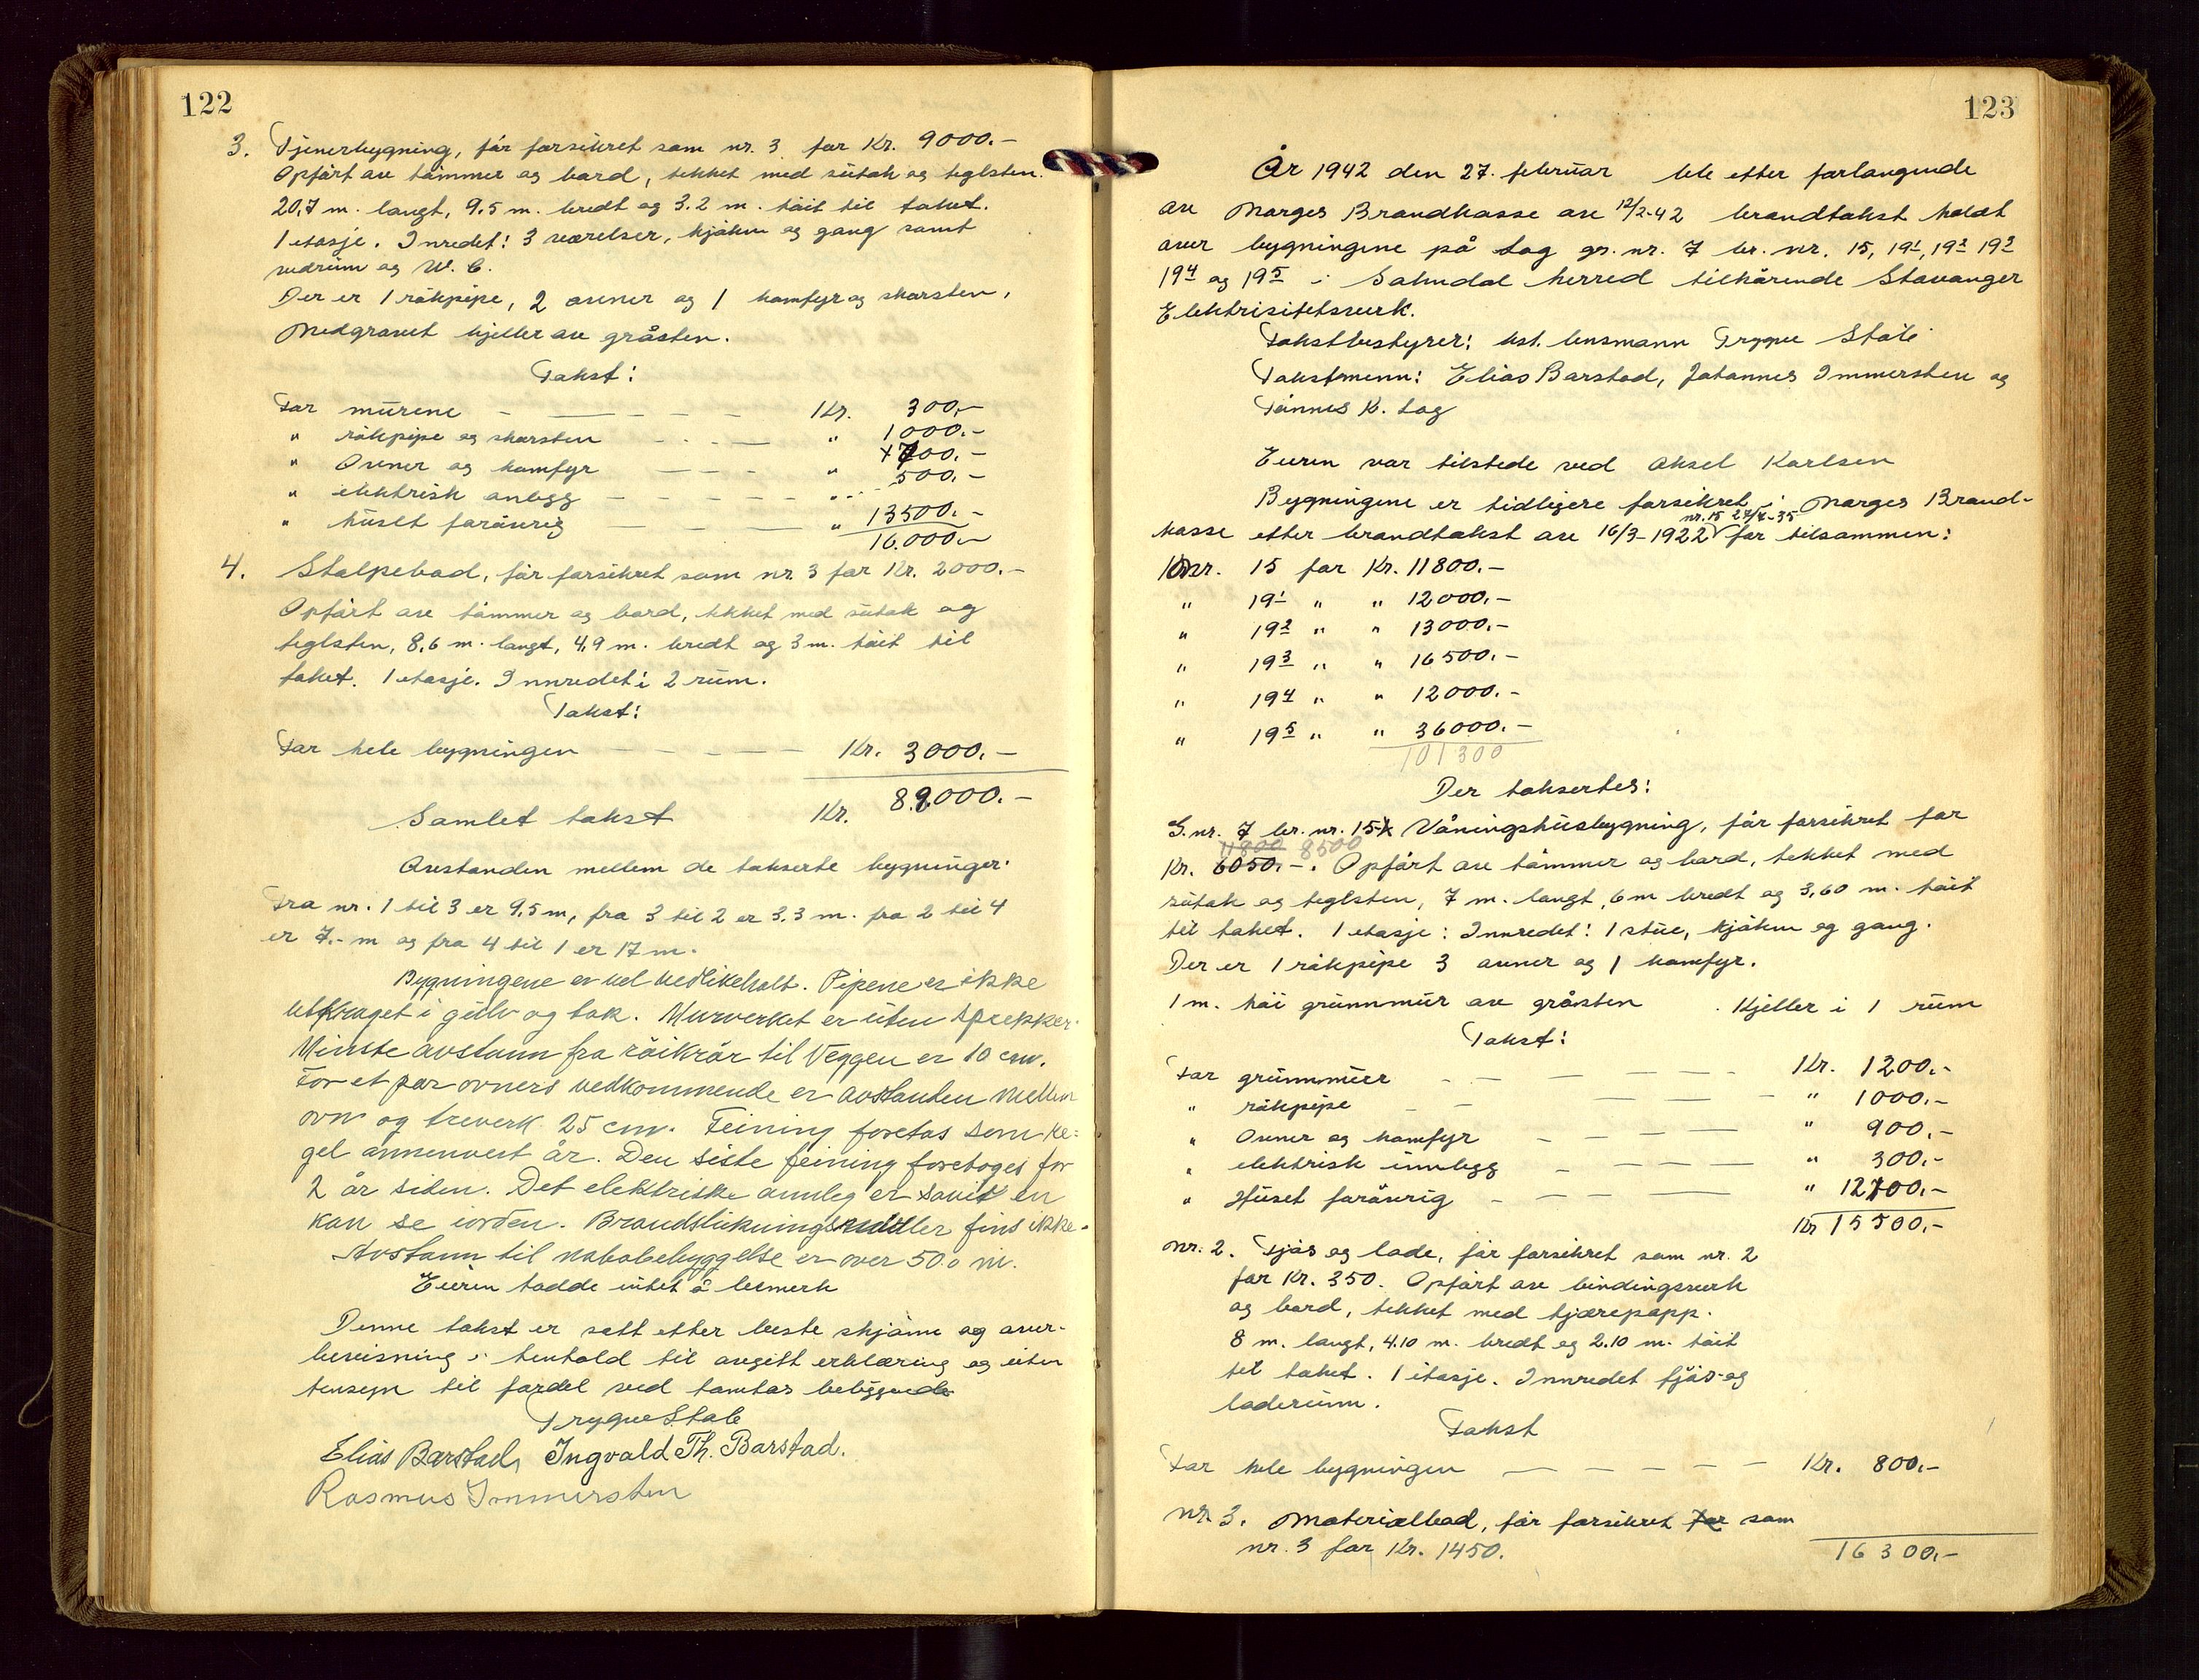 122
3. Tjenerbygning, før forsikret som nr. 3 for Kr. 9000.-
Opført av tømmer og bord, tekket med sutak og teglsten.
20,7 m. langt, 9.5 m. bredt og 3.2 m. høit til taket.
1 etasje. Inredet: 3 værelser, kjøken og gang samt
vedrum og W. C.
Der er 1 røkpipe, 2 ovner og 1 komfyr og skorsten,
Nedgravet kjeller av gråsten.
Takst:
For murene - Kr. 300,-
" røkpipe og skorsten " 1000.-
" Ovner og komfyr " 700.-
" elektrisk anlegg " 500.-
" huset forøvrig " 13500.-
16.000.-
4. Stolpebod, før forsikret som nr. 3 for Kr. 2000.-
Opført av tømmer og bord, tekket med sutak og
teglsten, 8,6 m. langt, 4,9 m. bredt og 3 m. høit til
taket. 1 etasje. Innredet i 2 rum.
Takst:
For hele bygningen Kr. 3000.-
Samlet takst Kr. 89000.-
Avstanden mellem de takserte bygninger:
Fra nr. 1 til 3 er 9,5 m, fra 3 til 2 er 3.3 m. fra 2 til 4
er 7.- m og fra 4 til 1 er 17 m.
Bygningene er vel vedlikeholt. Pipene er ikke
utkraget i gulv og tak. Murverket er uten sprekker.
Minste avstann fra røikrør til Veggen er 10 cm.
For et par ovners vedkommende er avstanden mellem
ovn og treverk 25 cm. Feining foretas som re=
gel annenvert år. Den siste feining foretoges for
2 år siden. Det elektriske annleg er såvit en
kan se iorden. Brandslukningsmidler fins ikke.
Avstann til nabobebyggelse er over 50.0 m.
Eieren hadde intet å bemerk
Denne takst er satt etter beste skjønn og over-
bevisning i henhold til avgitt erklæring og uten
hensyn til fordel ved tomtas beliggende
Trygve Støle
Elias Barstad, Ingvald Th. Barstad.
Rasmus Immersten
123
År 1942 den 27. februar ble etter forlangende
av Norges Brandkasse av 12/2-42 brandtakst holdt
over bygningene på Log gr. nr. 7 br. nr. 15, 19¹, 19² 19³
19⁴ og 19⁵ i Sokndal herred tilhørende Stavanger
Elektrisitetsverk.
Takstbestyrer: kst. lensmann Trygve Støle
Takstmenn: Elias Barstad, Johannes Immersten og
Tønnes K. Log
Eieren var tilstede ved Aksel Karlsen
Bygningene er tidligere forsikret i Norges Brand-
nr. 15 27/7-35
kasse etter brandtakst av 16/3-1922 for tilsammen:
Bnr. 15 for Kr. 11800.-
" 19¹ " " 12000.-
" 19² " " 13000.-
" 19³ " " 16500.-
" 19⁴ " " 12000.-
" 19⁵ " " 36000.-
101300
Der taksertes:
G. nr. 7 br. nr. 15 Våningshusbygning, før forsikret for
11800 8500
Kr. 6050.-. Opført av tømmer og bord, tekket med
sutak og teglsten, 7 m. langt, 6 m bredt og 3,60 m. høit
til taket. 1 etasje: Innredet: 1 stue, kjøken og gang.
Der er 1 røkpipe 3 ovner og 1 komfyr.
1 m. høi grunnmur av gråsten. Kjeller i 1 rum
Takst:
For grunnmuer Kr. 1200.-
" røkpipe " 1000.-
" Ovner og komfyr " 900.-
" elektrisk innlegg " 300.-
" Huset forøvrig " 12100.-
Kr 15500.-
Nr. 2. Fjøs og lade, før forsikret som nr. 2
for Kr. 350. Opført av bindingsverk
og bord, tekket med tjærepapp.
8 m. langt, 4.10 m. bredt og 2.10 m. høit
til taket. 1 etasje. Innredet fjøs-og
laderum.
Takst
For hele bygningen Kr. 800.-
Nr. 3. Materialbod, før forsikret for som
nr. 3 for Kr. 1450.
16300.-